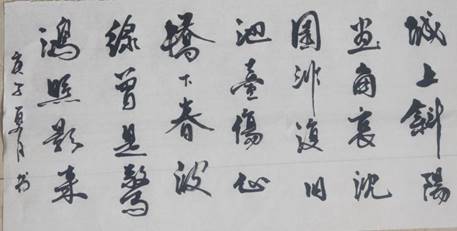 城上斜陽
畫角哀沈
園非復旧
池臺傷心
橋下春波
綠曾是驚
鴻照影来
庚子夏月书